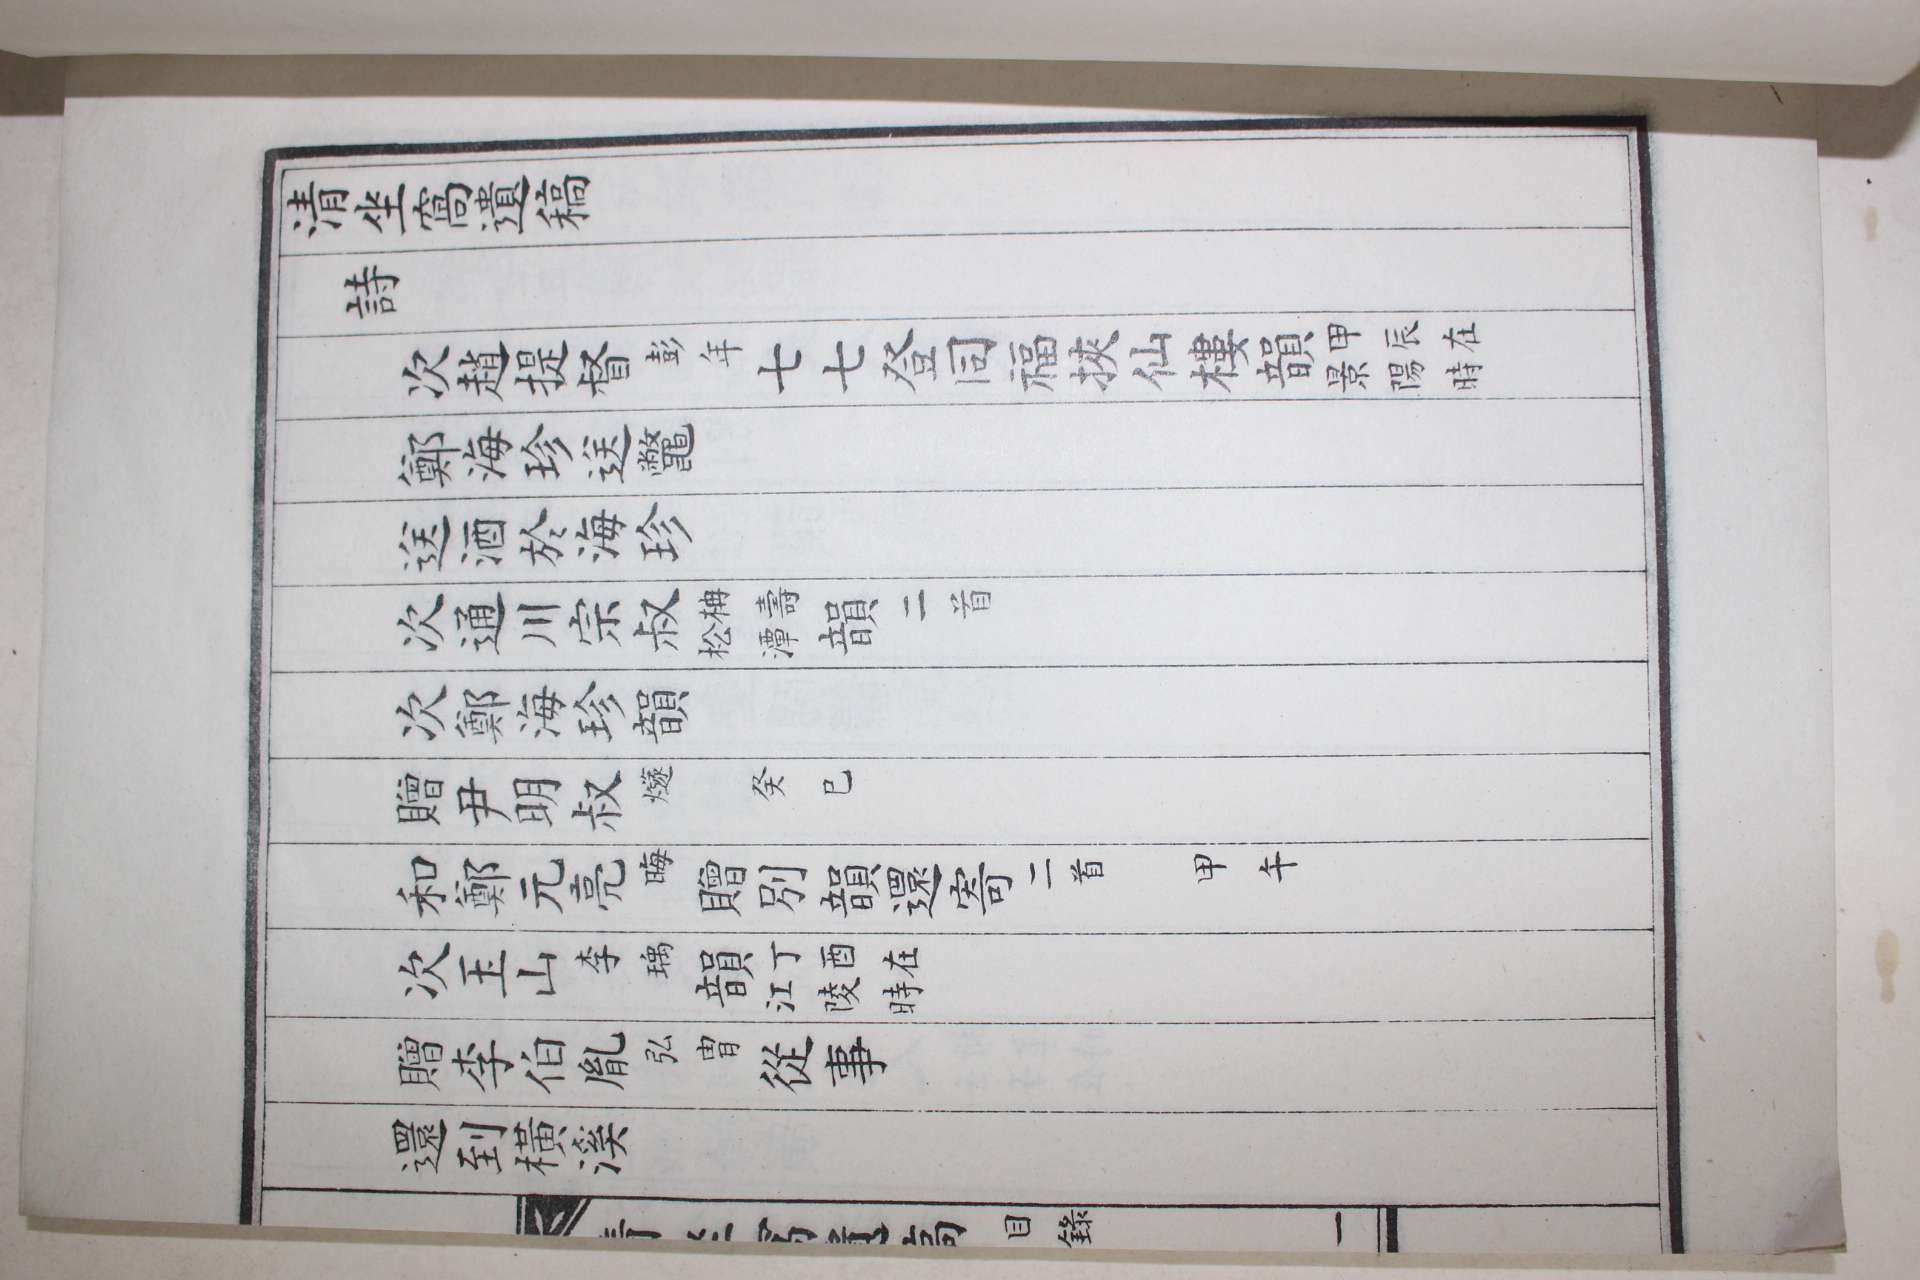 清坐窩遺稿
詩
次趙提督彭年七七登同福挾仙樓韻甲辰在景陽時
鄭海珍送鼈
送酒於海珍
次通川宗叔柟壽松潭韻二首
次鄭海珍韻
贈尹明叔燧 癸巳
和鄭元亮晦贈別韻還寄二首 甲午
次玉山李瑀韻丁酉在江陵時
贈李伯胤弘冑從事
還到橫溪
目錄 一